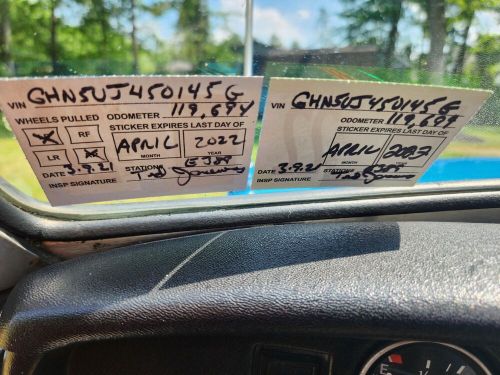 VIN GHN5UJ450145G
WHEELS PULLED
ODOMETER 119,694
STICKER EXPIRES LAST DAY OF
RF
LR
APRIL 2022
MONTH YEAR
DATE 3.9.21 STATION EJ89
INSP SIGNATURE
VIN GHN5UJ450145G
ODOMETER 119,699
STICKER EXPIRES LAST DAY OF
APRIL 2023
MONTH YEAR
DATE 3.9.21 STATION
INSP SIGNATURE
E